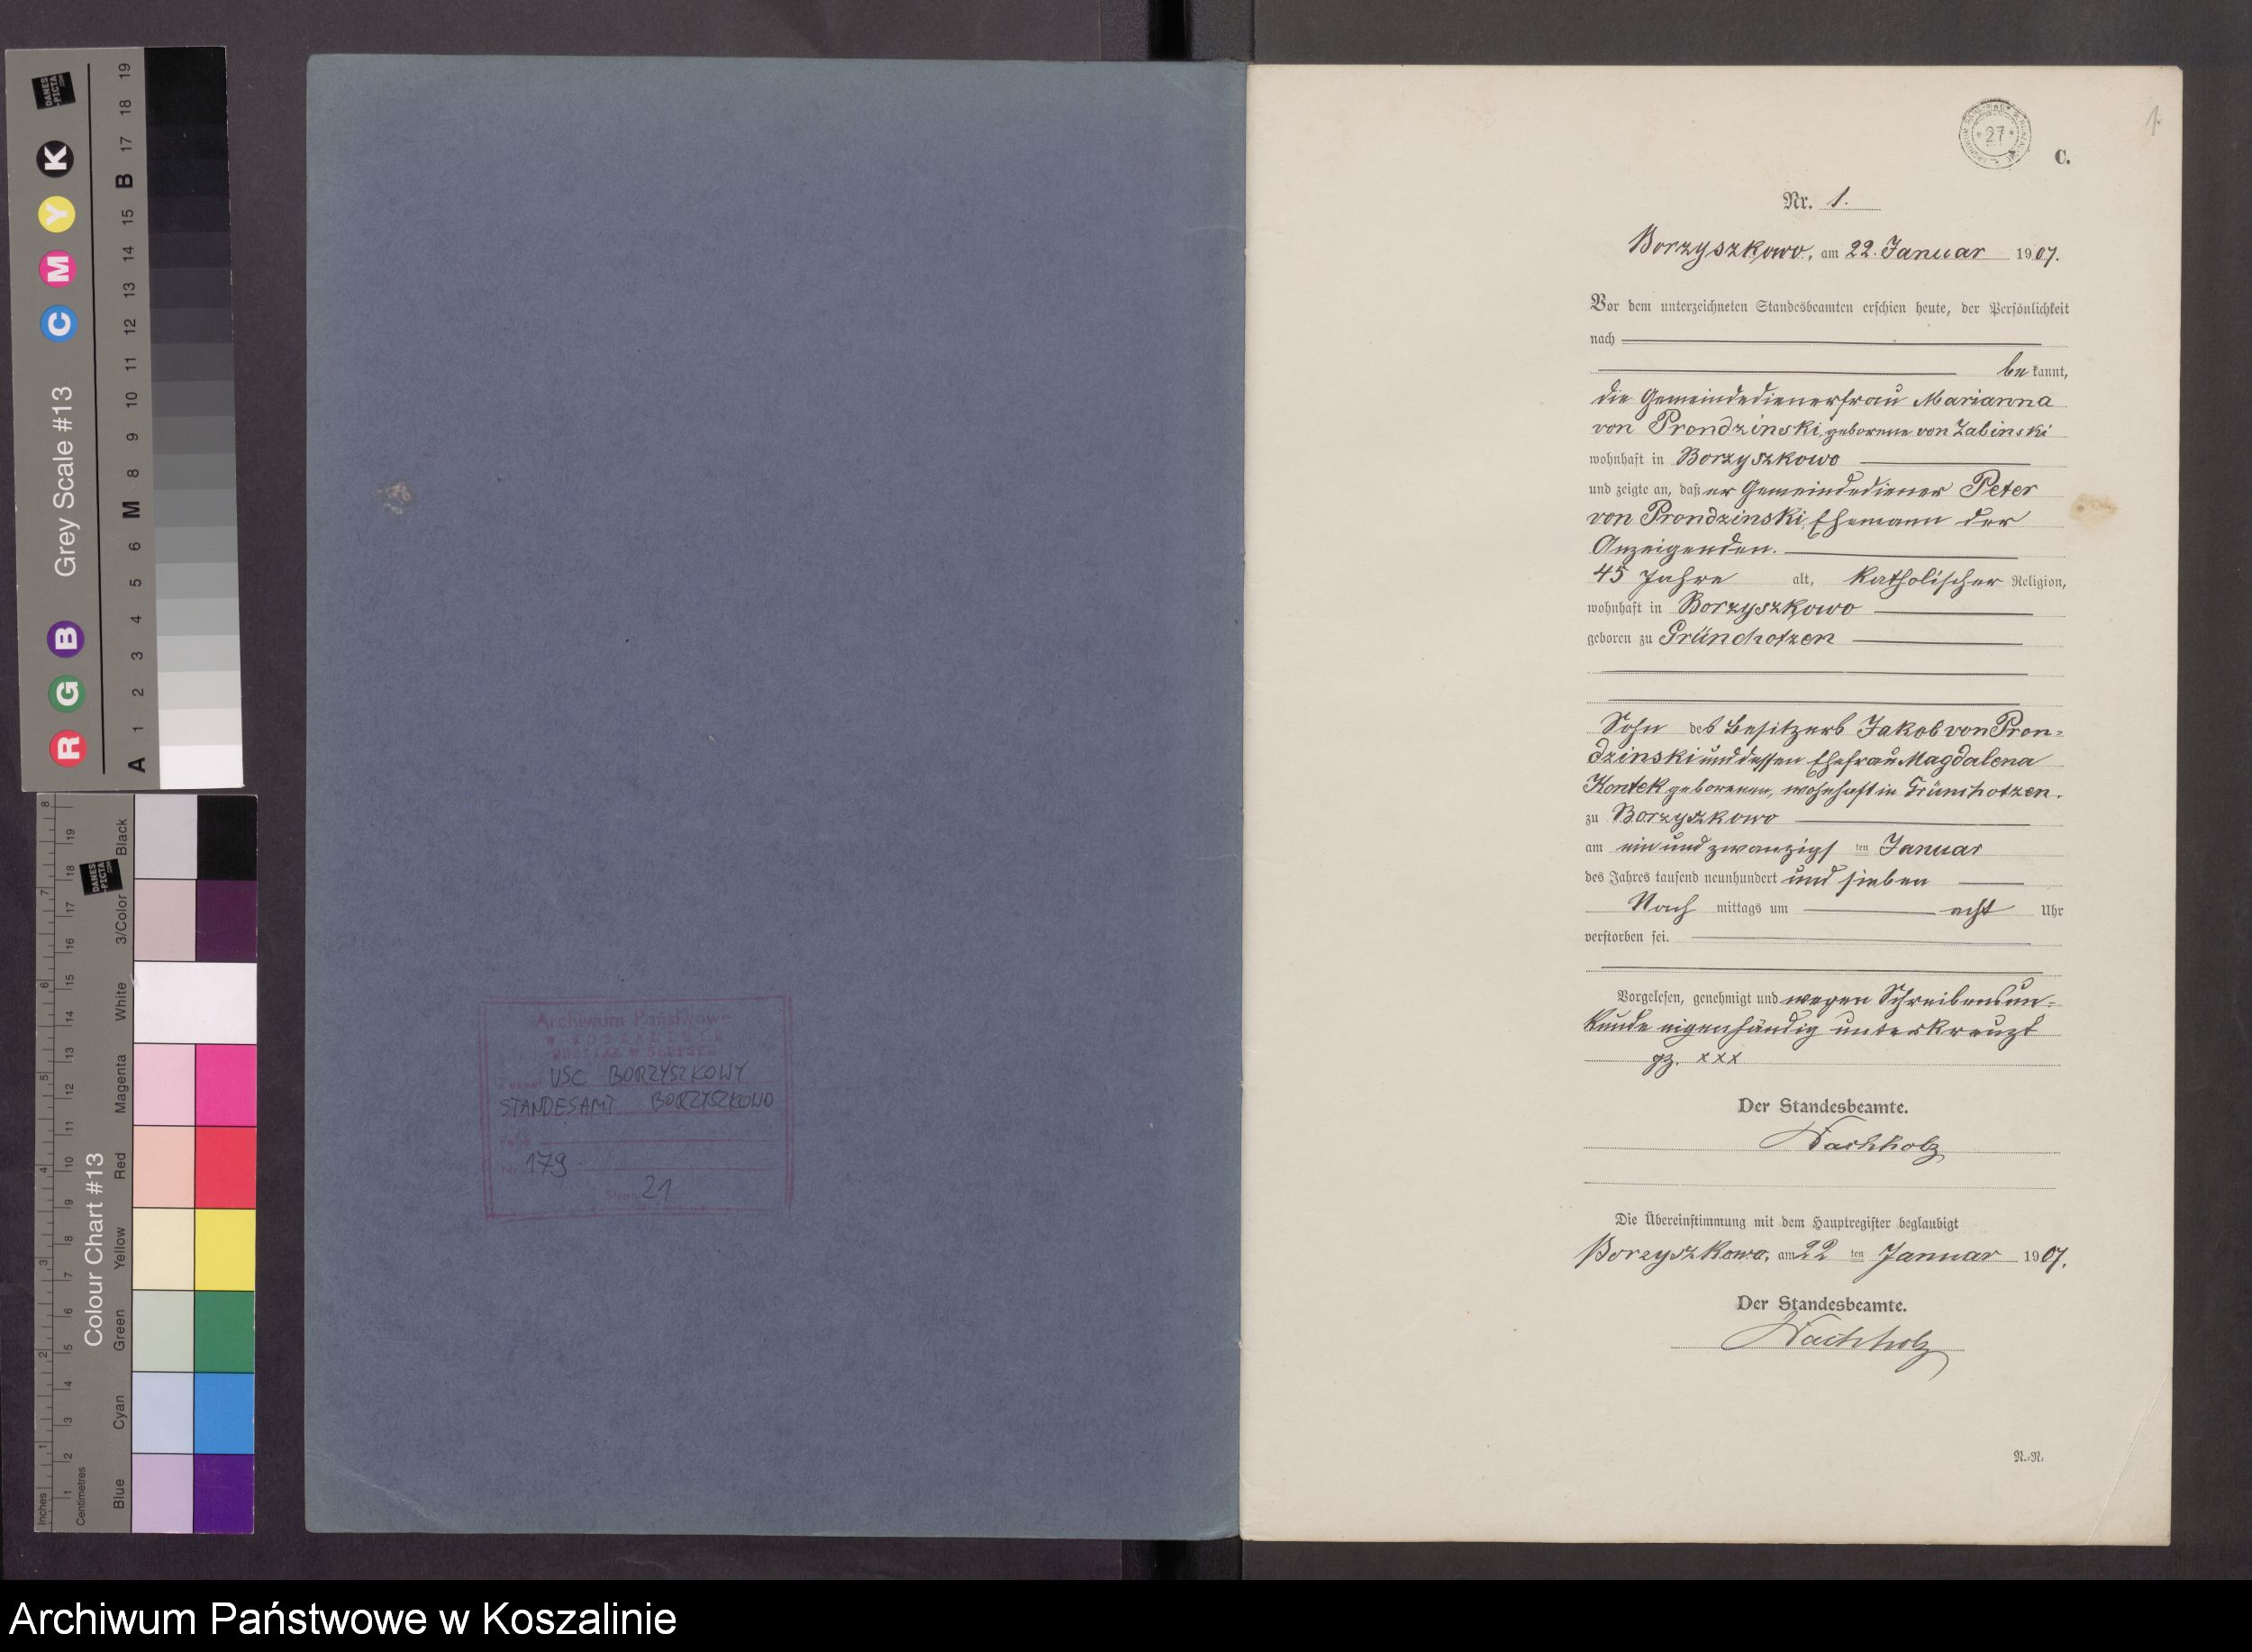 Grey Scale #13
R G B C M Y K
A 1 2 3 4 5 6 M 8 9 10 11 12 13 14 15 B 17 18 19
DANES-PICTA.COM
Colour Chart #13
Blue Cyan Green Yellow Red Magenta White 3/Color Black
Inches
Centimetres
Archiwum Państwowe
w KOSZALINIE
ODDZIAŁ w SŁUPSKU
USC BORZYSZKOWY
STANDESAMT BORZYSZKOWO
Nr 179.
Stron 21
27
1.
C.
Nr. 1.
Borzyszkowo, am 22. Januar 1907.
Vor dem unterzeichneten Standesbeamten erschien heute, der Persönlichkeit
nach
bekannt,
die Gemeindedienerfrau Marianna
von Prondzinski, geborene von Zabinski
wohnhaft in Borzyszkowo
und zeigte an, daß er Gemeindediener Peter
von Prondzinski, Ehemann der
Anzeigenden.
45 Jahre alt, katholischer Religion,
wohnhaft in Borzyszkowo
geboren zu Gründhotzen
Sohn des Besitzers Jakob von Pron-
dzinski und dessen Ehefrau Magdalena
Kontek geborenen, wohnhaft in Grünchotzen.
zu Borzyszkowo
am ein und zwanzigsten Januar
des Jahres tausend neunhundert und sieben
Nach mittags um acht Uhr
verstorben sei.
Vorgelesen, genehmigt und wegen Schreibensun-
kunde eigenhändig unterkreuzt
gz. xxx
Der Standesbeamte.
Nachholz
Die Übereinstimmung mit dem Hauptregister beglaubigt
Borzyszkowo, am 22 ten Januar 1907.
Der Standesbeamte.
Nachholz
N.-N.
Archiwum Państwowe w Koszalinie